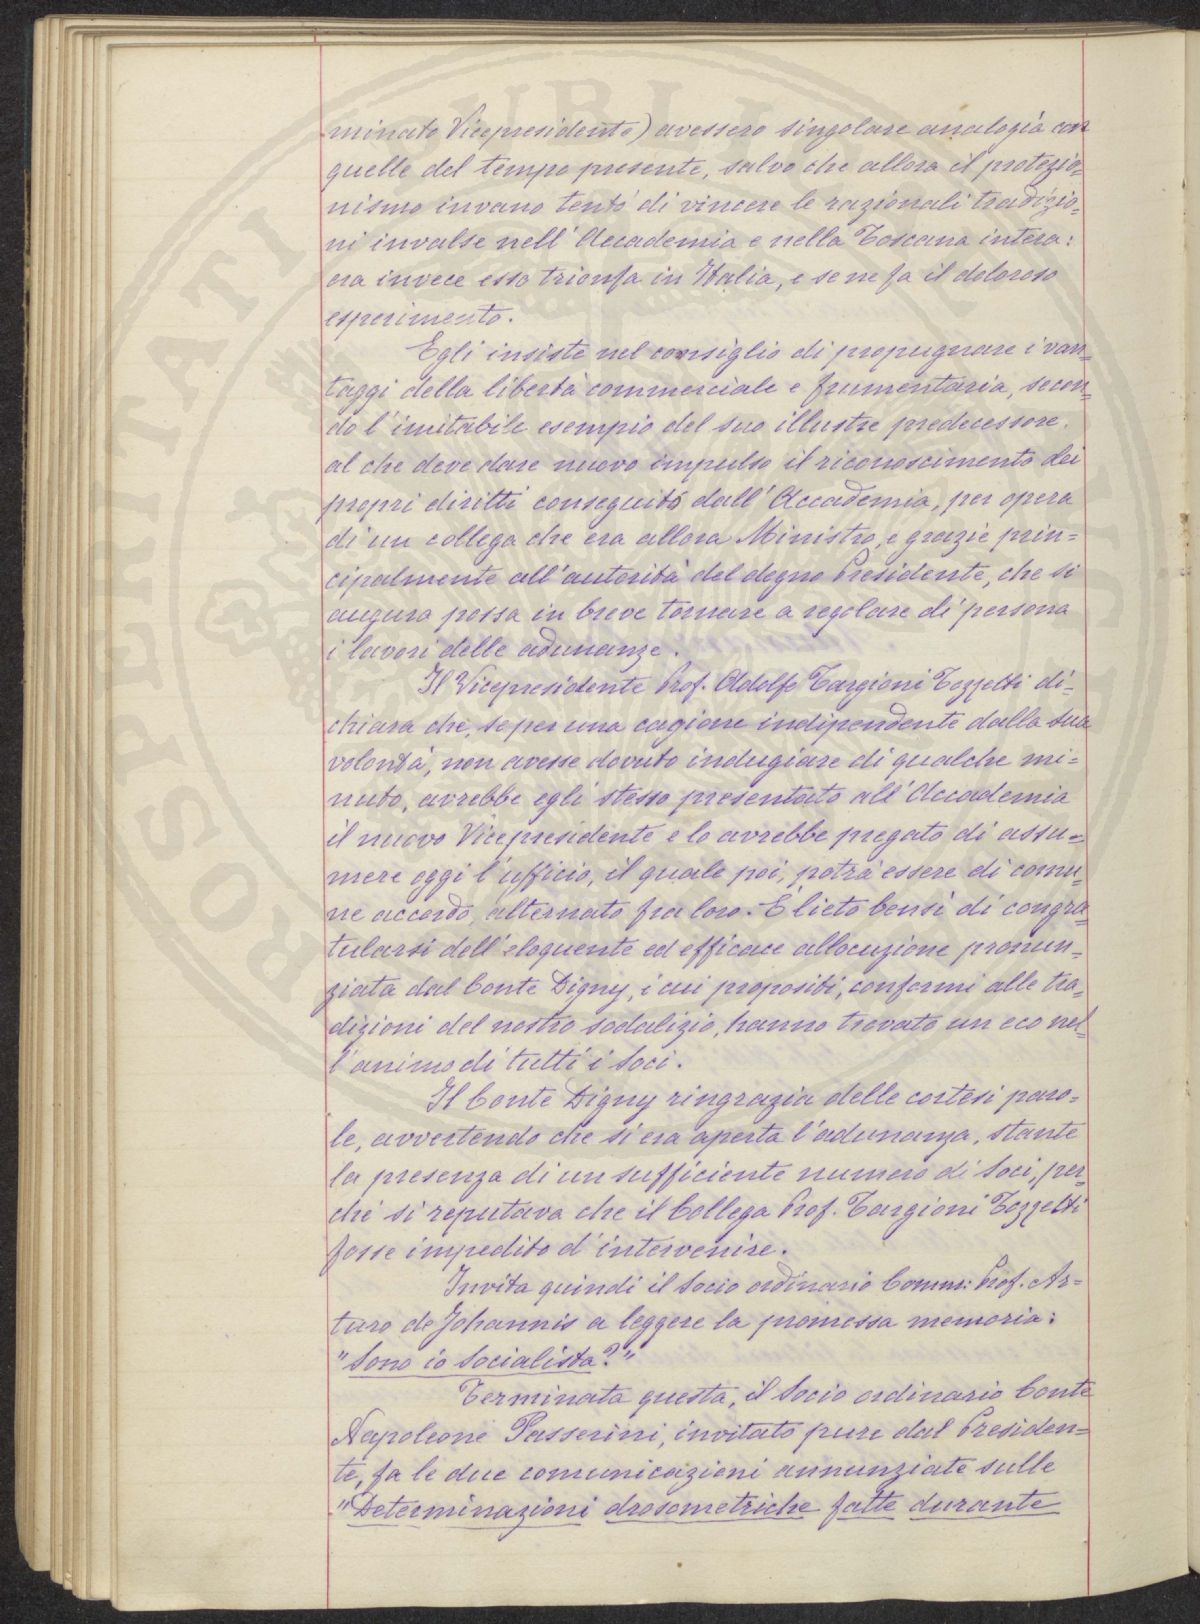 minato Vicepresidente) avessero singolare analogia con
quelle del tempo presente, salvo che allora il protezio=
nismo invano tentò di vincere le razionali tradizio=
ni invalse nell'Accademia e nella Toscana intera:
ora invece esso trionfa in Italia, e se ne fa il doloroso
esperimento.
Egli insiste nel consiglio di propugnare i van=
taggi della libertà commerciale e frumentaria, secon=
do l'imitabile esempio del suo illustre predecessore.
al che deve dare nuovo impulso il riconoscimento dei
propri diritti conseguito dall'Accademia, per opera
di un collega che era allora Ministro, e grazie prin=
cipalmente all'autorità del degno Presidente, che si
augura possa in breve tornare a regolare di persona
i lavori delle adunanze.
Il Vicepresidente Prof. Adolfo Targioni Tozzetti di=
chiara che, se per una cagione indipendente dalla sua
volontà, non avesse dovuto indugiare di qualche mi=
nuto, avrebbe egli stesso presentato all'Accademia
il nuovo Vicepresidente e lo avrebbe pregato di assu=
mere oggi l'ufficio, il quale poi, potrà essere di comu=
ne accordo, alternato fra loro. È lieto bensì di congra=
tularsi dell'eloquente ed efficace allocuzione pronun=
ziata dal Conte Digny, i cui propositi, conformi alle tra=
dizioni del nostro sodalizio, hanno trovato un eco nel=
l'animo di tutti i Soci.
Il Conte Digny ringrazia delle cortesi paro=
le, avvertendo che si era aperta l'adunanza, stante
la presenza di un sufficiente numero di Soci, per=
chè si reputava che il Collega Prof. Targioni Tozzetti
fosse impedito d'intervenire.
Invita quindi il Socio ordinario Comm: Prof. Ar=
turo de Johannis a leggere la promessa memoria:
"Sono io Socialista?"
Terminata questa, il Socio ordinario Conte
Napoleone Passerini, invitato pure dal Presiden=
te, fa le due comunicazioni annunziate sulle
"Determinazioni drosometriche fatte durante
ROSPERITATI PUBLICAE